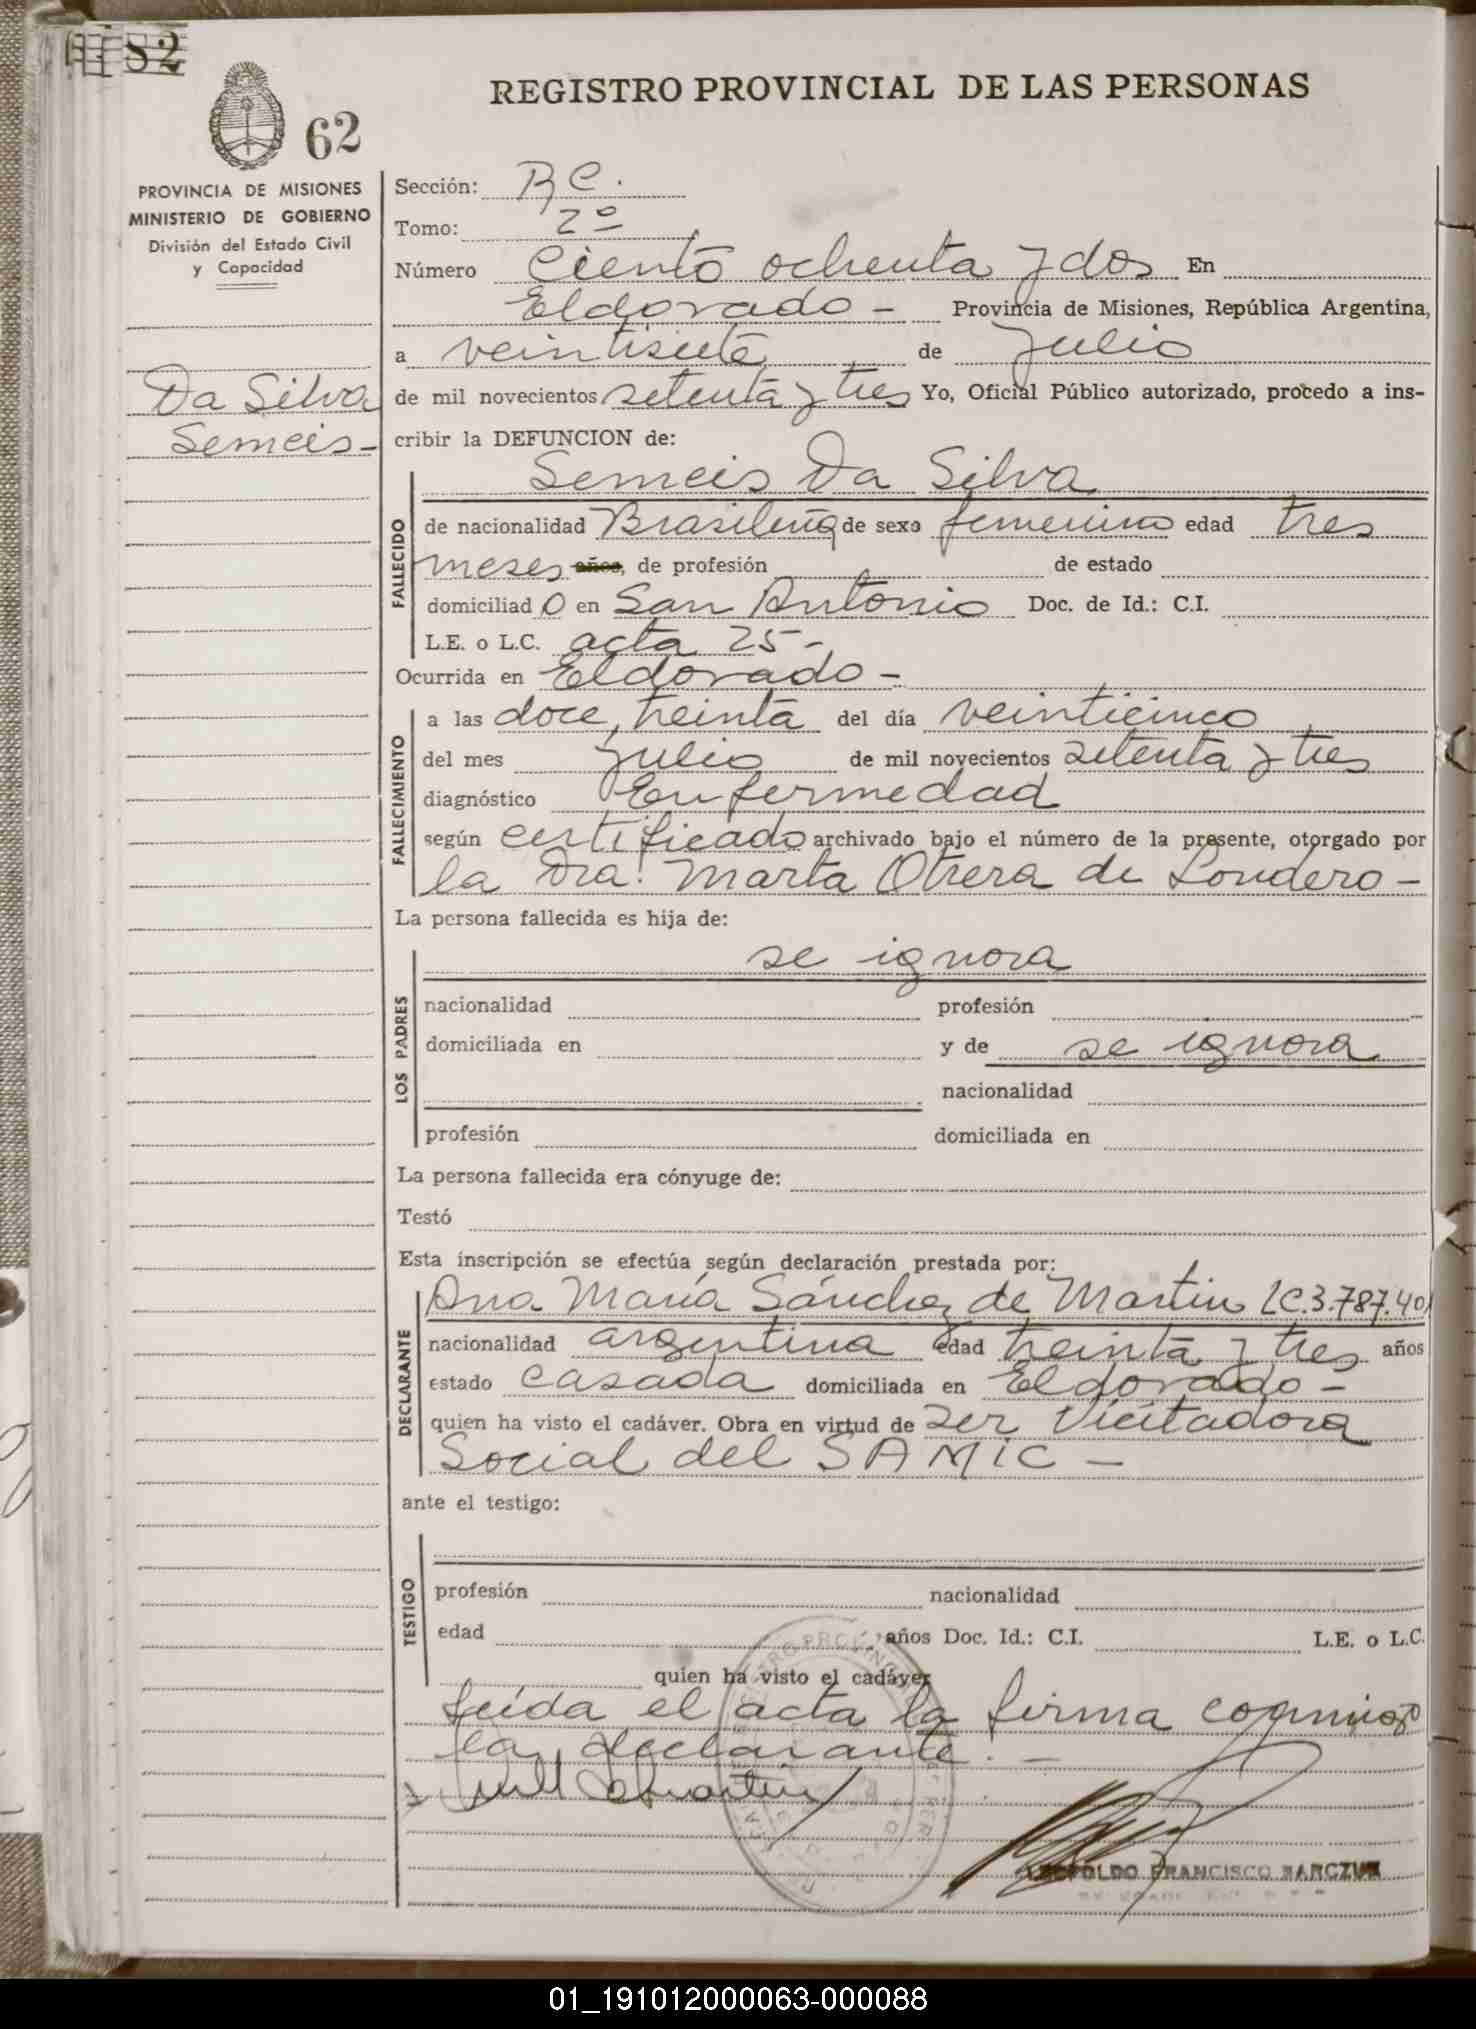 82
62
REGISTRO PROVINCIAL DE LAS PERSONAS
PROVINCIA DE MISIONES
MINISTERIO DE GOBIERNO
División del Estado Civil
y Capacidad
Da Silva
Semeis-
Sección: B C.
Tomo: 2º
Número Ciento ochenta y dos En
Eldorado - Provincia de Misiones, República Argentina,
a veintisiete de Julio
de mil novecientos setenta y tres Yo, Oficial Público autorizado, procedo a ins-
cribir la DEFUNCION de:
Semeis Da Silva
FALLECIDO
de nacionalidad Brasileña de sexo femenino edad tres
meses años, de profesión de estado
domiciliado en San Antonio Doc. de Id.: C.I.
L.E. o L.C. acta 25-
Ocurrida en Eldorado -
FALLECIMIENTO
a las doce, treinta del día veinticinco
del mes julio de mil novecientos setenta y tres
diagnóstico Enfermedad
según certificado archivado bajo el número de la presente, otorgado por
la Dra. Marta Otrera de Londero -
La persona fallecida es hija de:
LOS PADRES
se ignora
nacionalidad profesión
domiciliada en y de se ignora
nacionalidad
profesión domiciliada en
La persona fallecida era cónyuge de:
Testó
Esta inscripción se efectúa según declaración prestada por:
DECLARANTE
Ana María Sánchez de Martin LC.3.787.401
nacionalidad argentina edad treinta y tres años
estado casada domiciliada en Eldorado -
quien ha visto el cadáver. Obra en virtud de ser Vicitadora
Social del SAMIC -
ante el testigo:
TESTIGO
profesión nacionalidad
edad años Doc. Id.: C.I. L.E. o L.C.
quien ha visto el cadáver
Leída el acta la firma conmigo
la declarante. -
LEOPOLDO FRANCISCO BARCZUK
01_191012000063-000088